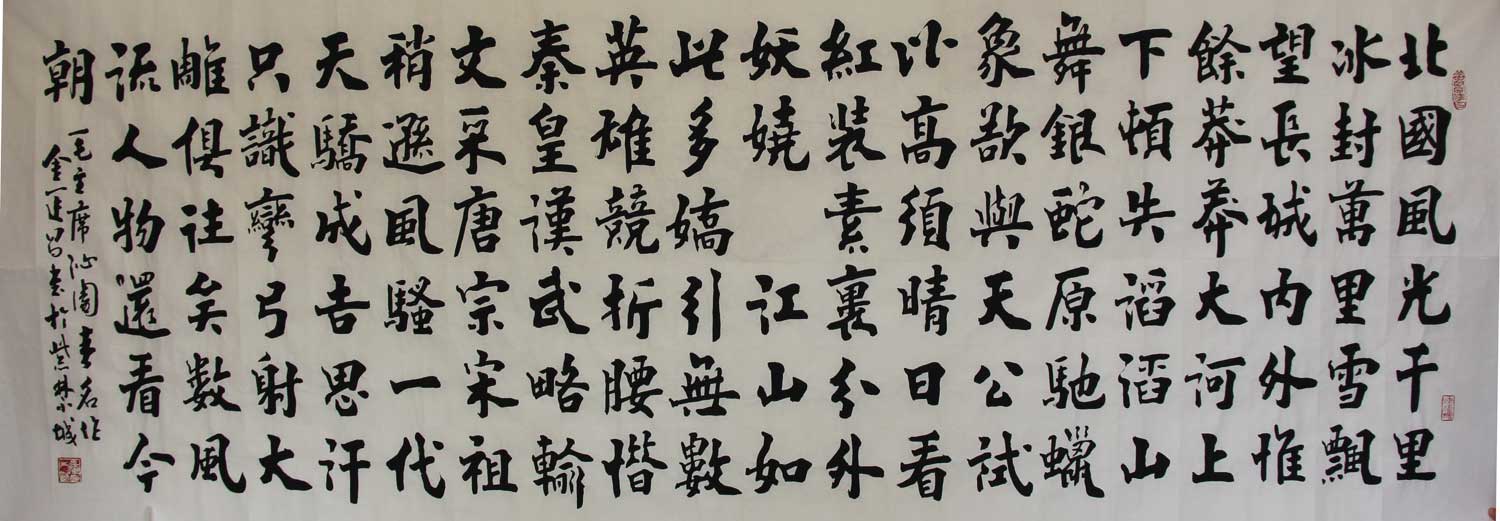 北國風光千里
冰封萬里雪飄
望長城內外惟
餘莽莽大河上
下頓失滔滔山
舞銀蛇原馳蠟
象欲與天公試
比高須晴日看
紅裝素裹分外
妖嬈 江山如
此多嬌引無數
英雄競折腰惜
秦皇漢武略輸
文采唐宗宋祖
稍遜風騷一代
天驕成吉思汗
只識彎弓射大
雕俱往矣數風
流人物還看今
朝
毛主席沁園春名作
金運昌書於紫禁城